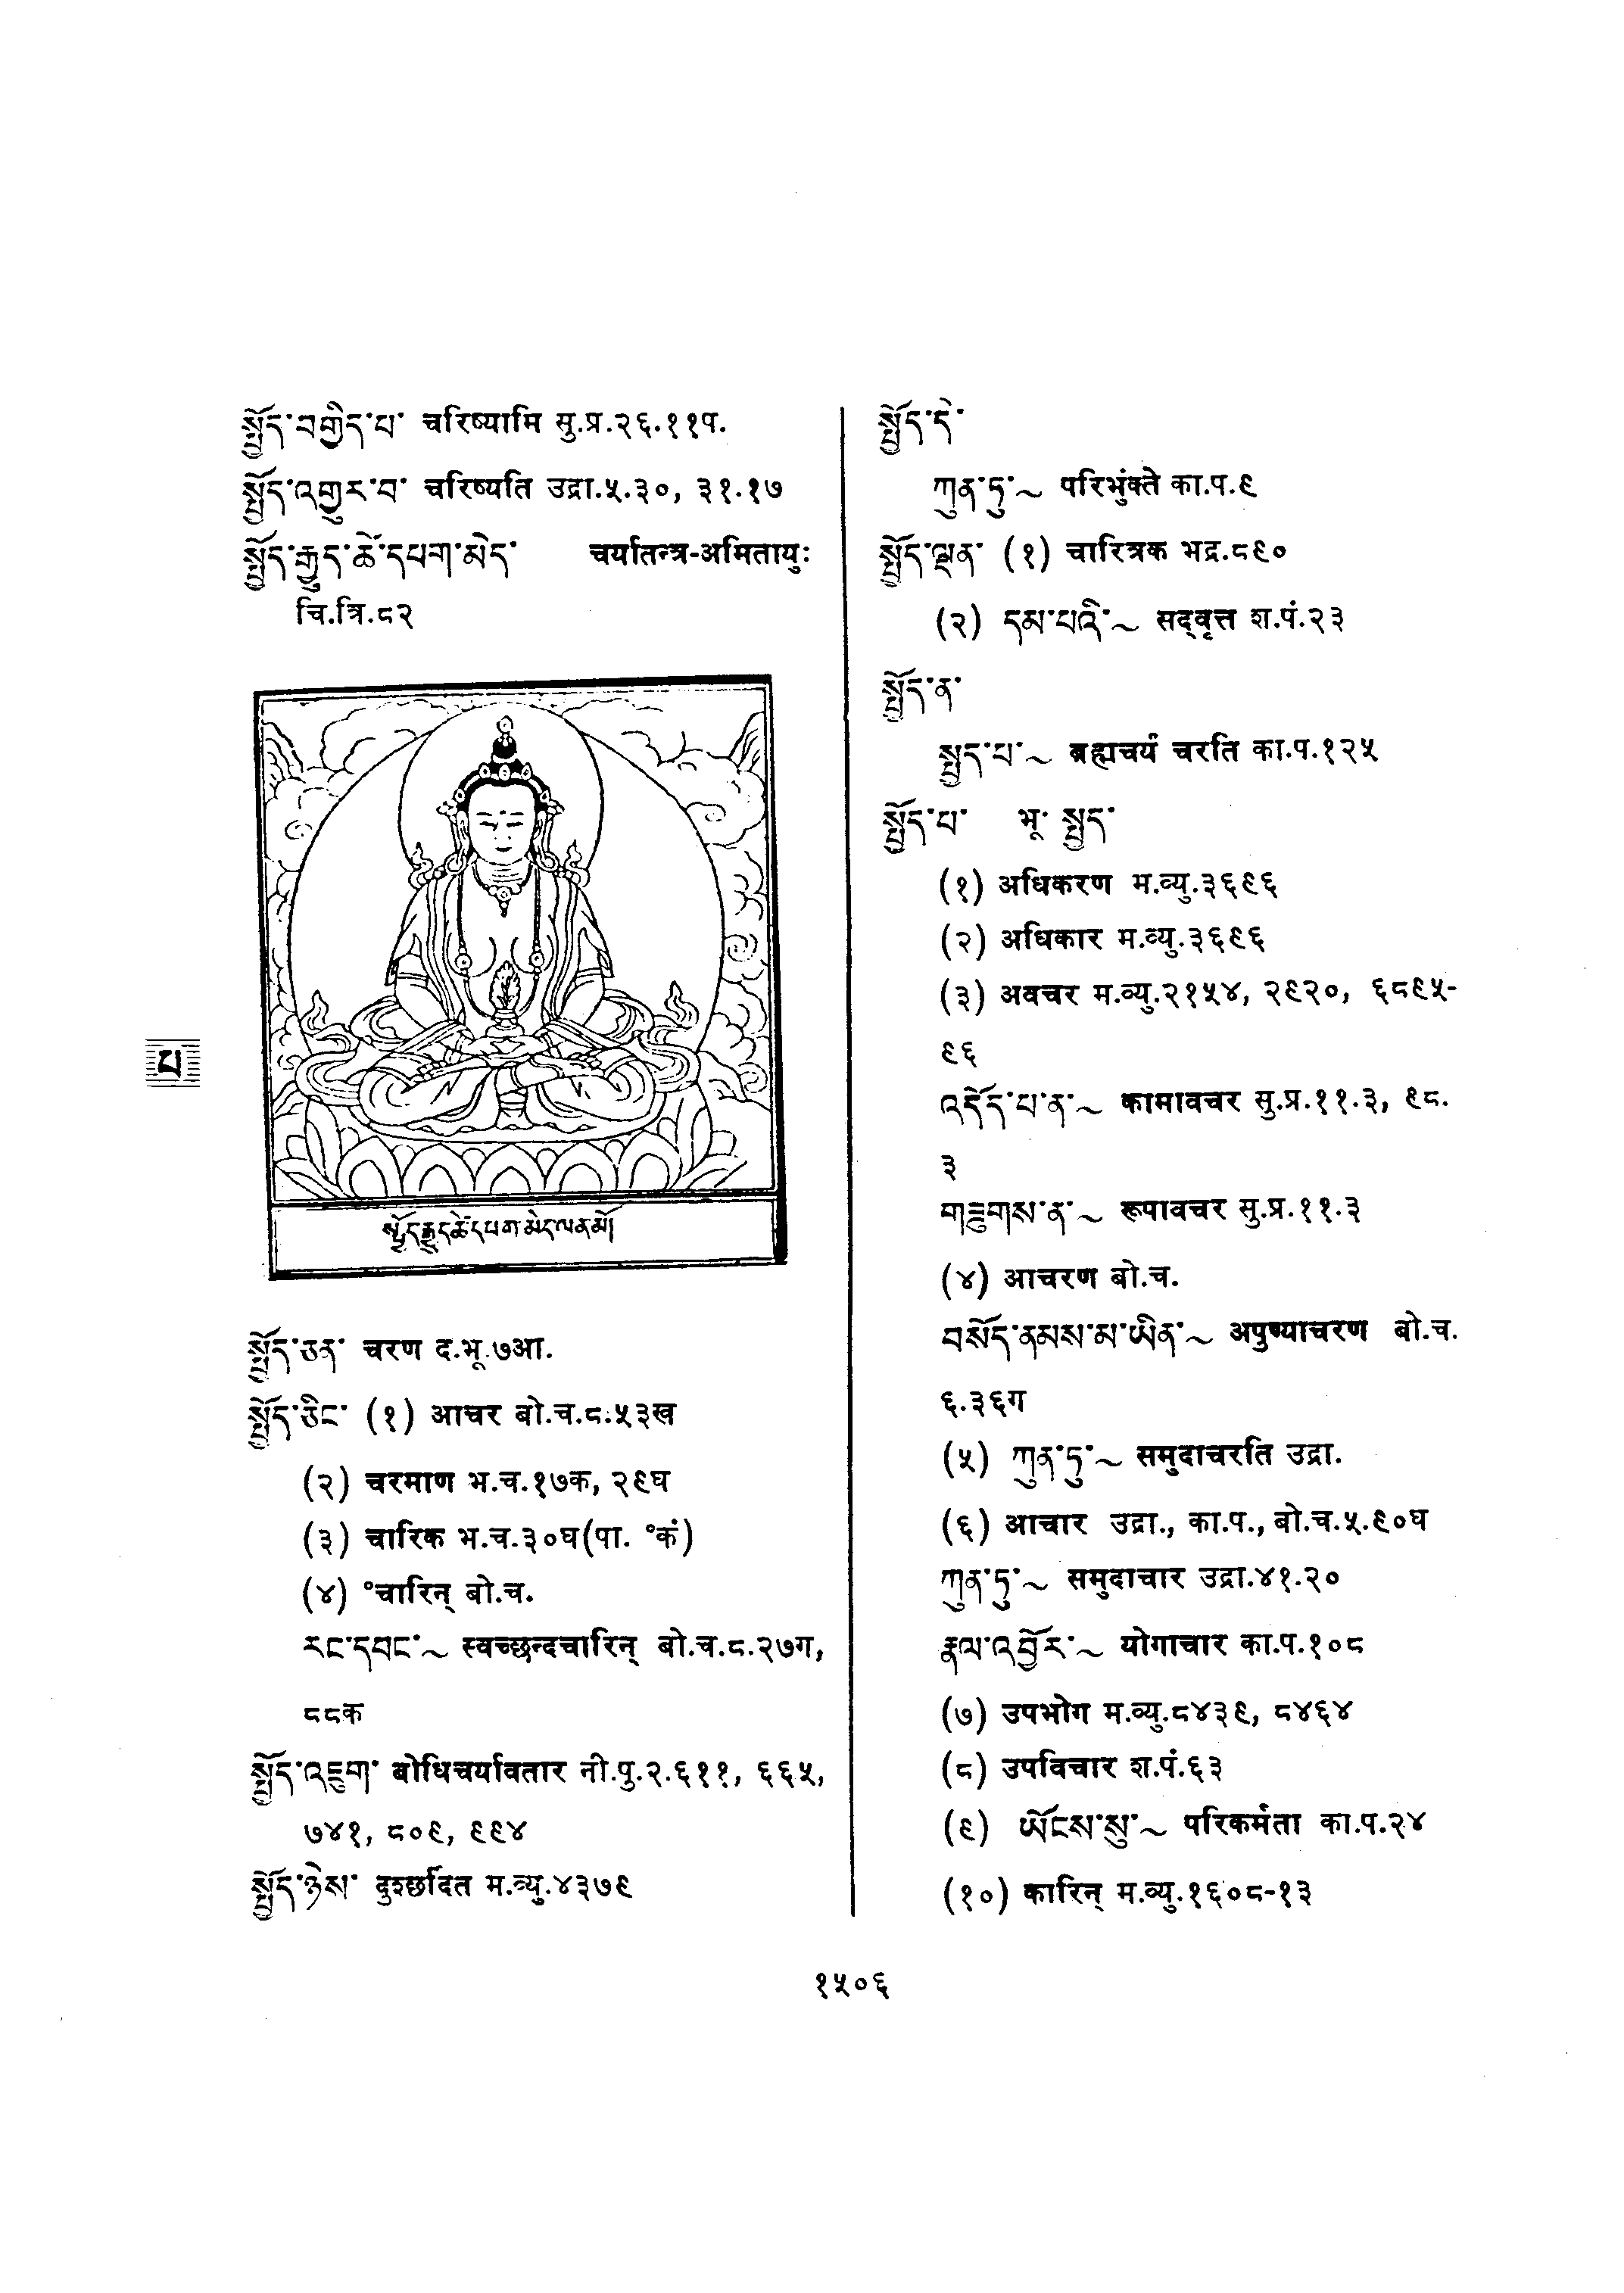 སྤྱོད་བགྱིད་པ་ चरिष्यामि सु.प्र.२६.११प.
སྤྱོད་འགྱུར་བ་ चरिष्यति उद्रा.५.३०, ३१.१७
སྤྱོད་རྒྱུད་ཚེ་དཔག་མེད་ चर्यातन्त्र-अमितायुः
चि.त्रि.८२
སྤྱོད་རྒྱུད་ཚེ་དཔག་མེད་ལ་ན་མོ།
སྤྱོད་ཅན་ चरण द.भू.७आ.
སྤྱོད་ཅིང་ (१) आचर बो.च.८.५३ख
(२) चरमाण भ.च.१७क, २९घ
(३) चारिक भ.च.३०घ(पा. °कं)
(४) °चारिन् बो.च.
རང་དབང་~ स्वच्छन्दचारिन् बो.च.८.२७ग,
८८क
སྤྱོད་འཇུག་ बोधिचर्यावतार नी.पु.२.६११, ६६५,
७४१, ८०९, ९९४
སྤྱོད་ཉེས་ दुश्छर्दित म.व्यु.४३७९
པ
སྤྱོད་དེ་
ཀུན་ཏུ་~ परिभुंक्ते का.प.९
སྤྱོད་ལྡན་ (१) चारित्रक भद्र.८९०
(२) དམ་པའི་~ सद्वृत्त श.पं.२३
སྤྱོད་ན་
སྤྱད་པ་~ ब्रह्मचर्यं चरति का.प.१२५
སྤྱོད་པ་ भू. སྤྱད་
(१) अधिकरण म.व्यु.३६९६
(२) अधिकार म.व्यु.३६९६
(३) अवचर म.व्यु.२१५४, २९२०, ६८९५-
९६
འདོད་པ་ན་~ कामावचर सु.प्र.११.३, ९८.
३
གཟུགས་ན་~ रूपावचर सु.प्र.११.३
(४) आचरण बो.च.
བསོད་ནམས་མ་ཡིན་~ अपुण्याचरण बो.च.
६.३६ग
(५) ཀུན་ཏུ་~ समुदाचरति उद्रा.
(६) आचार उद्रा., का.प., बो.च.५.९०घ
ཀུན་ཏུ་~ समुदाचार उद्रा.४१.२०
རྣལ་འབྱོར་~ योगाचार का.प.१०८
(७) उपभोग म.व्यु.८४३९, ८४६४
(८) उपविचार श.पं.६३
(९) ཡོངས་སུ་~ परिकर्मता का.प.२४
(१०) कारिन् म.व्यु.१६०८-१३
१५०६